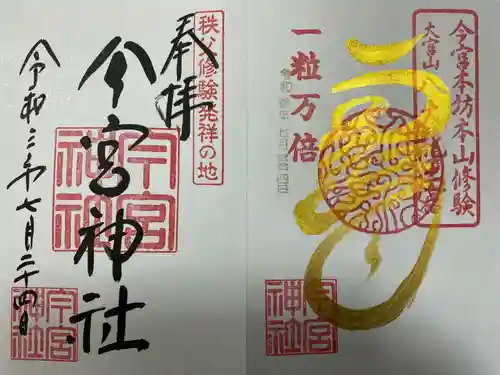 奉拝
秩父修験発祥の地
今宮神社
今宮神社
令和二年七月二十四日
今宮神社
今宮本坊本山修験
大宮山
一粒万倍
今宮神社